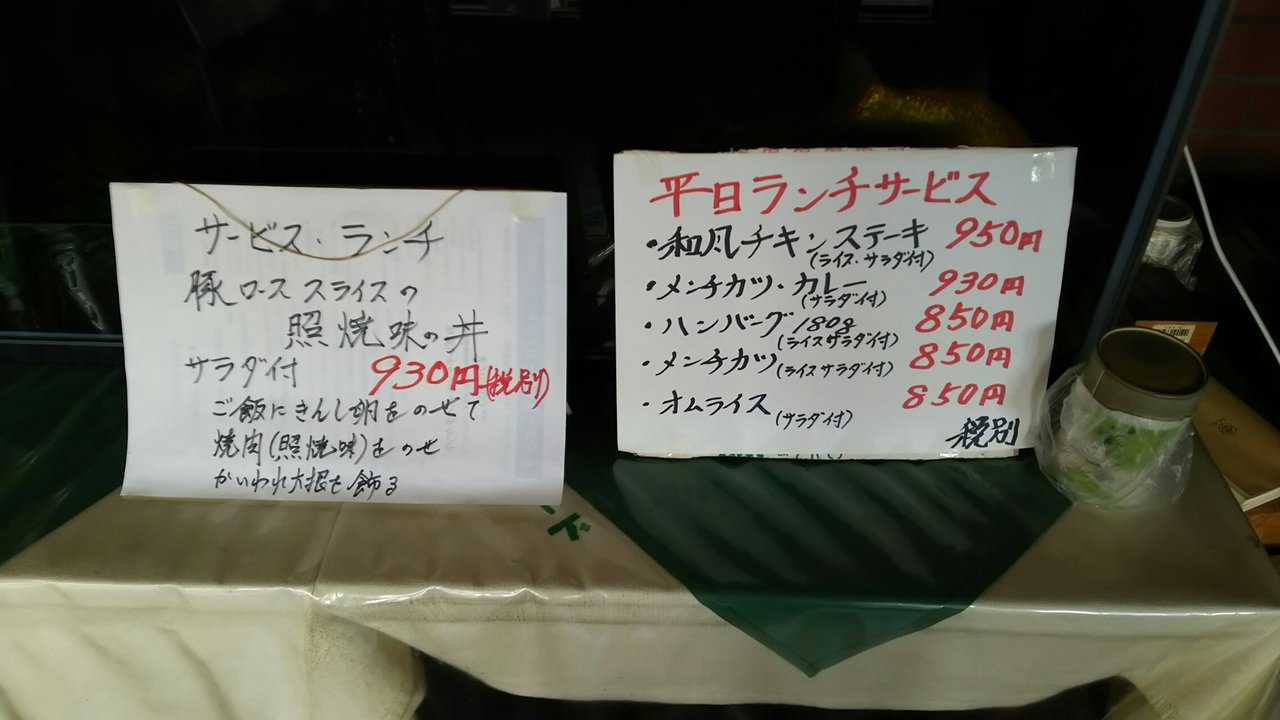 サービス・ランチ
豚ロース スライスの
照焼味の丼
サラダ付 930円(税別)
ご飯にきんし卵をのせて
焼肉(照焼味)をのせ
かいわれ大根を飾る
平日ランチサービス
・和風チキンステーキ 950円
(ライス・サラダ付)
・メンチカツ・カレー 930円
(サラダ付)
・ハンバーグ180g 850円
(ライスサラダ付)
・メンチカツ(ライスサラダ付) 850円
・オムライス(サラダ付) 850円
税別